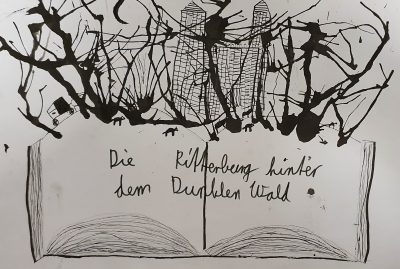 Die Ritterburg hinter
dem Dunklen Wald